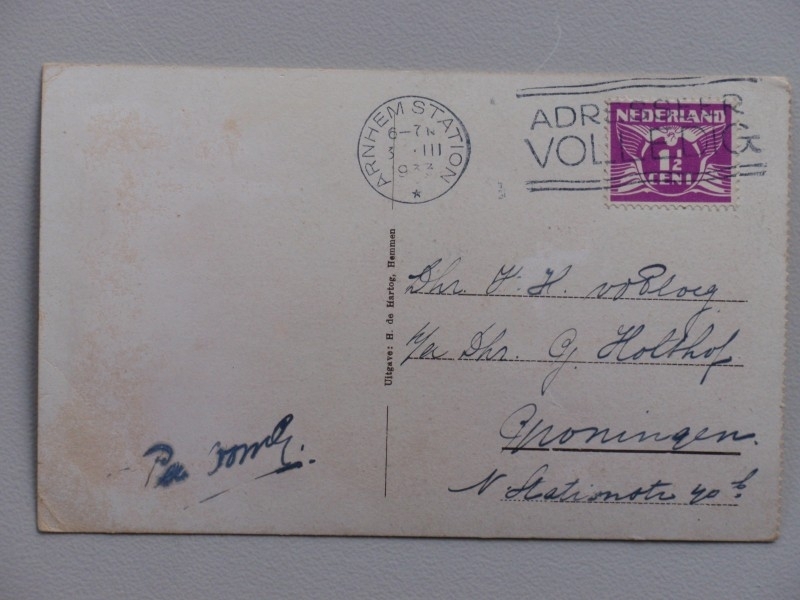 ARNHEM STATION
6-7N
III
NEDERLAND
1½
CENT
Uitgave: H. de Hartog, Hemmen
Dhr. H. v d Ploeg
p/a Dhr. G. Holthof
Groningen.
N Stationstr 40 b
Pa